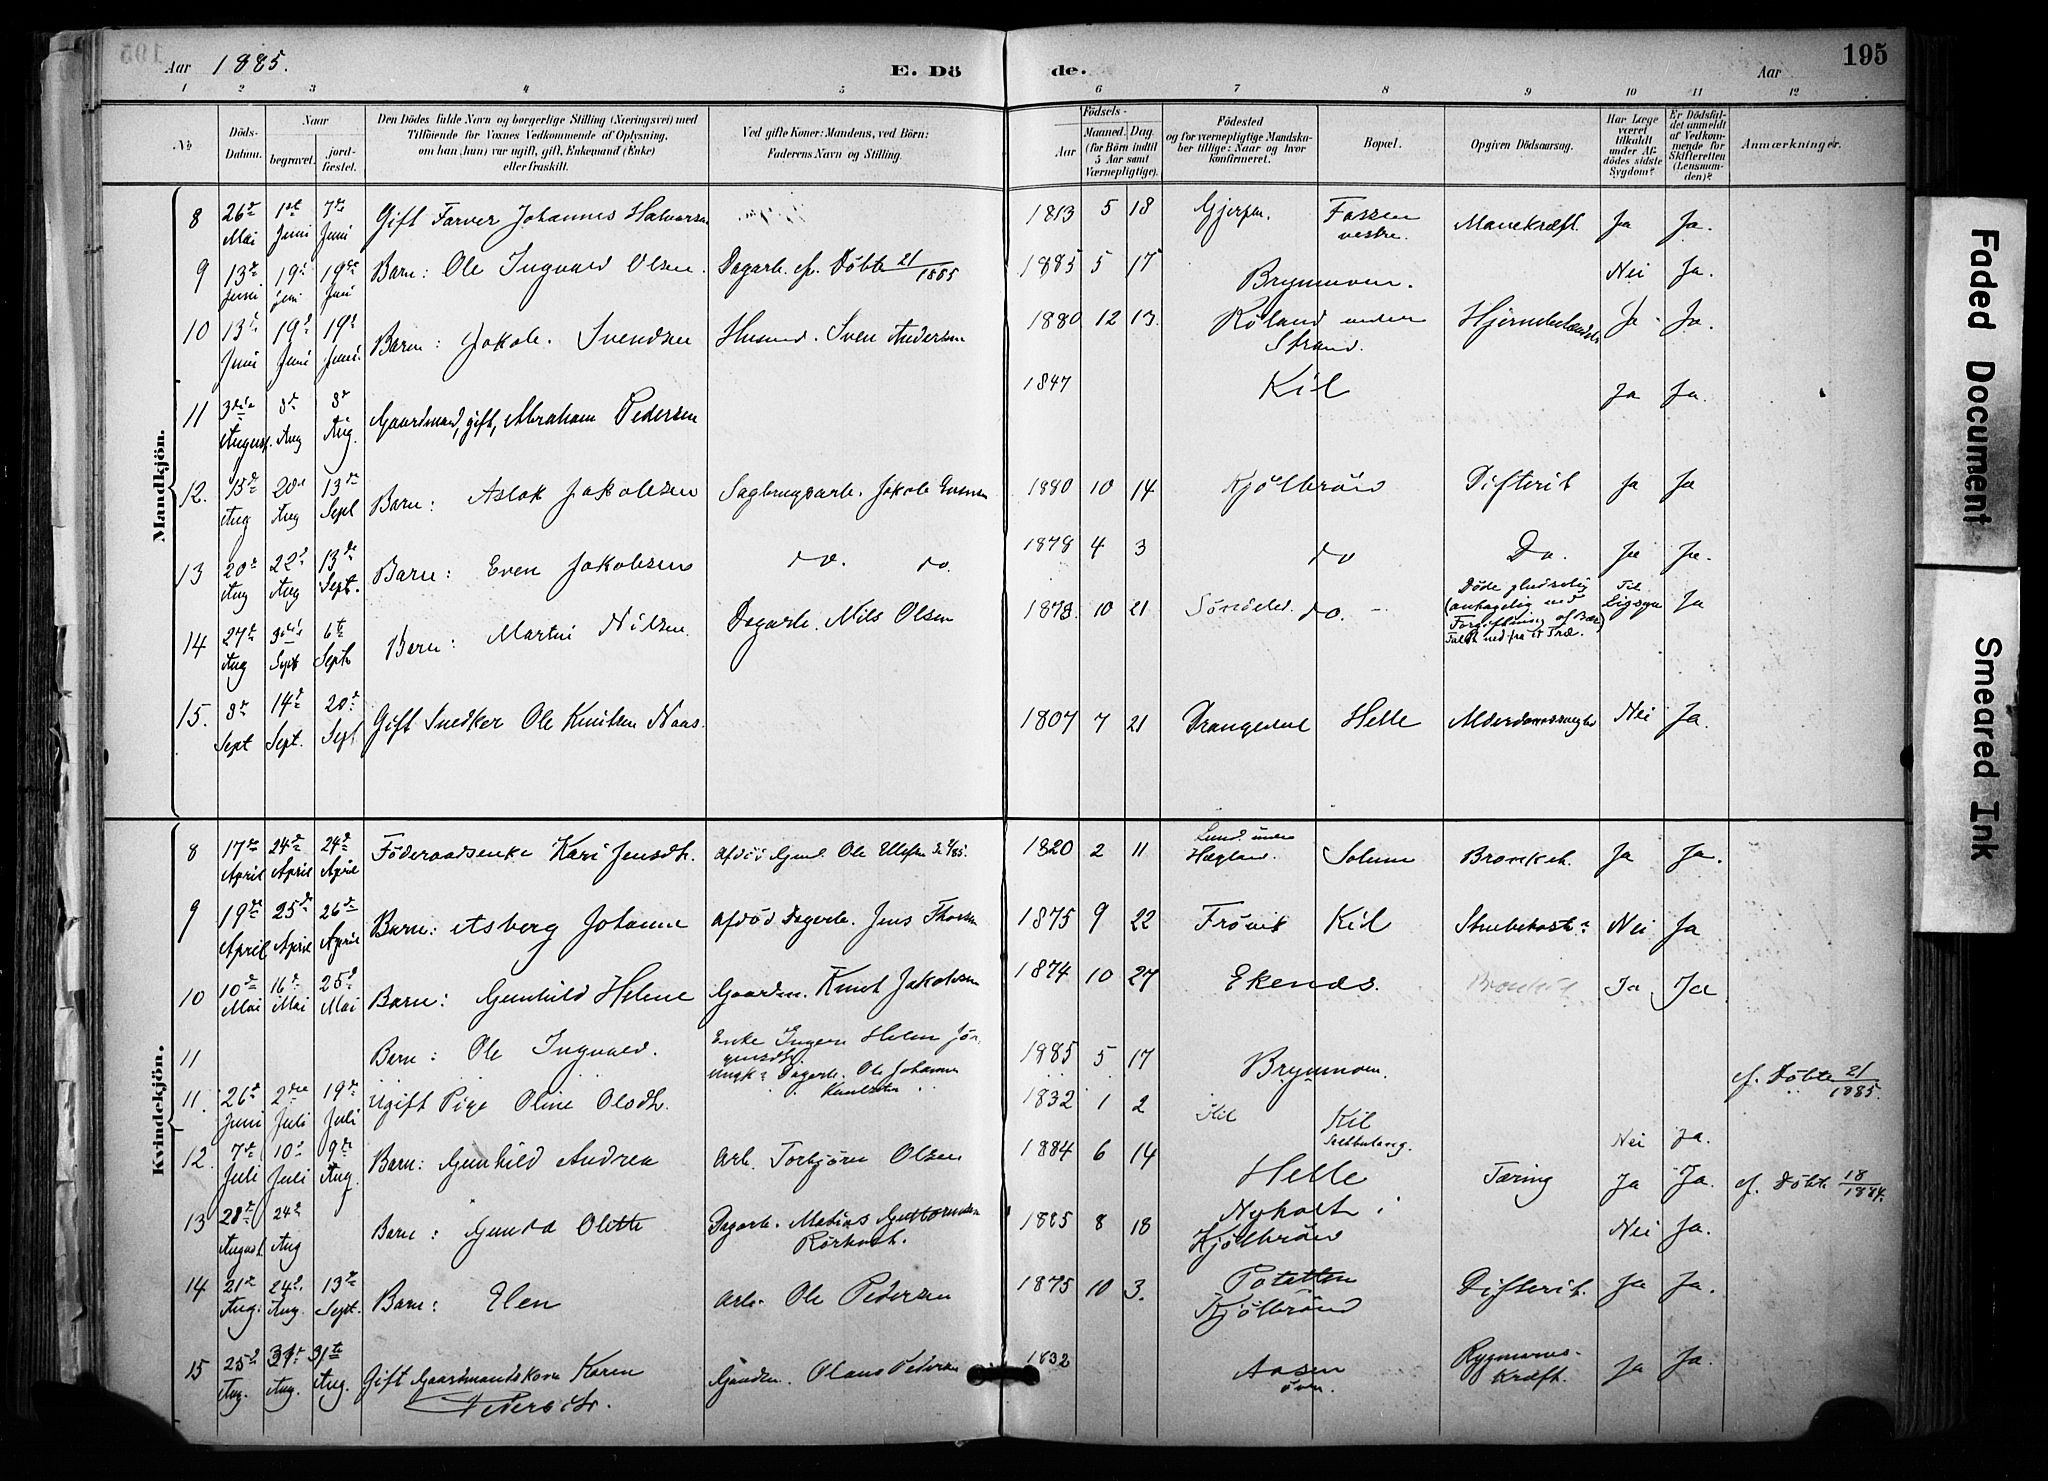 195
Aar 1885.
E. Dö de.
Aar
1 2 3 4 5 6 7 8 9 10 11 12
No
Döds-Datum.
Naar
begravet. jord-fæstet.
Den Dödes fulde Navn og borgerlige Stilling (Næringsvei) med
Tilföiende for Voxnes Vedkommende af Oplysning,
om han (hun) var ugift, gift, Enkemand (Enke)
eller fraskilt.
Ved gifte Koner: Mandens, ved Börn:
Faderens Navn og Stilling.
Födsels-
Aar
Maaned. Dag.
(for Börn indtil
5 Aar samt
Værnepligtige).
Födested
og for værnepligtige Mandska-
ber tillige: Naar og hvor
konfirmeret.
Bopæl.
Opgiven Dödsaarsag.
Har Læge
været
tilkaldt
under Af-
dödes sidste
Sygdom?
Er Dödsfal-
det anmeldt
af Vedkom-
mende for
Skifteretten
(Lensman-
den)?
Anmærkninger.
Mandkjön.
8 26de Mai 1ste Juni 7de Juni Gift Farver Johannes Halvorsen 1813 5 18 Gjerpen. Fossen vestre. Mavekræft. Ja Ja.
9 13de Juni 19de Juni 19de Juni Barn: Ole Ingvald Olsen. Dagarb. cfr. Döbte 21/1885 1885 5 17 Brynmoen. Nei Ja.
10 13de Juni 19de Juni 19de Juni. Barn: Jakob. Svendsen Husmd. Sven Andersen 1880 12 13. Röland under Strand. Ja Ja.
11 3die August. 8de Aug 8de Aug. Gaardmand, gift, Abraham Pedersen 1847 Kil Ja Ja.
12. 15de Aug 20de Aug 13de Sept Barn: Aslak Jakobsen Sagbrugsarb. Jakob Evensen 1880 10 14 Kjölbrönd Difterit Ja Ja
13 20de Aug 22de Aug 13de Sept. Barn: Even Jakobsen do. do. 1878 4 3 do Do. Ja Ja.
14 27de Aug 3die Sept 6te Sept Barn: Martin Nilsen. Dagarb. Nils Olsen 1873. 10 21 Söndeled. do. Döde pludselig (antagelig ved Forgiftning af Bær) Faldt ned fra et Træ. Til Ligsyn Ja
15. 8de Sept 14de Sept. 20de Sept Gift Snedker Ole Knutsen Naas. 1807 7 21 Drangedal Helle Alderdomssvaghed Nei Ja.
Kvindekjön.
8 17de April 24de April 24de April Föderaadsenke Kari Jensdtr. Afdöd Gmd. Ole Ellefsen 1820 2 11 Lund under Hægland. Solum Bronkit. Ja Ja.
9 19de April 25de April 26de April Barn: Asberg Johanne Afdöd Dagarb. Jens Thorsen 1875 9 22 Frövik Kil Strubehoste Nei Ja
10 10de Mai 16de Mai 25de Mai Barn: Gunhild Helene Gaardm. Knut Jakobsen 1874 10 27 Ekenæs. Bronkit Ja Ja
11 Barn: Ole Ingvald. Enke Ingen Helen Jörgensdtr. Ungk. Dagarb. Ole Johannes Knutsen 1885 5 17 Brynmoen. cf. Döbte 21/1885.
11. 26de Juni 2den Juli 19de Juli Ugift Pige Oline Olsdtr. 1832 1 2 Kil Kil Nei Ja.
12. 7de Juli 10de Juli 9de Aug. Barn: Gunhild Andrea Arb. Torbjörn Olsen 1884 6 14 Helle Tæring Ja Ja. cf. Döbte 18/1884.
13 20de August. 24de Aug Barn: Gunda Olette Dagarb. Mathias Guttormsen Rörholt. 1885 8 18 Nyholt i Kjölbrönd Nei Ja.
14 21de Aug. 24de Aug. 13de Sept. Barn: Elen Arb. Ole Pedersen 1875 10 3. Potetten Kjölbrönd Difterit. Ja Ja.
15 25de Aug. 31te Aug. 31te Aug. Gift Gaardmandskone Karen Pedersdtr. Gaardm. Olaus Pedersen 1832 Aasen övre Rygmarvs-Kræft. Ja Ja.
Faded Document
Smeared Ink